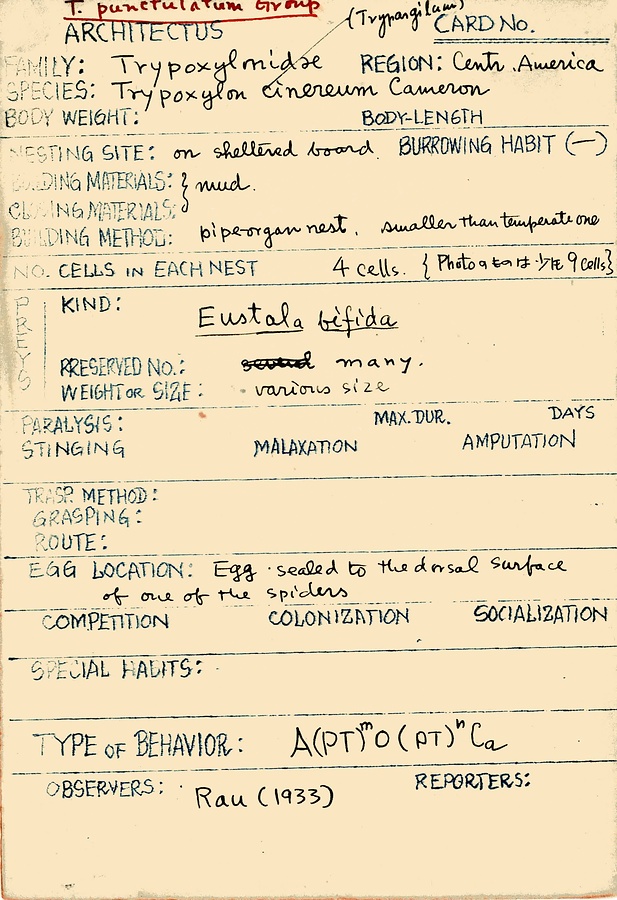 T. punctulatum Group
(Trypargilum)
ARCHITECTUS CARD No.
FAMILY: Trypoxylonidae REGION: Centr. America
SPECIES: Trypoxylon cinereum Cameron
BODY WEIGHT: BODY-LENGTH
NESTING SITE: on sheltered board. BURROWING HABIT (—)
BUILDING MATERIALS: } mud.
CLOSING MATERIALS:
BUILDING METHOD: pipe-organ nest, smaller than temperate one
NO. CELLS IN EACH NEST 4 cells. { Photoのものは少なくも 9 cells}
PREYS
KIND: Eustala bifida
PRESERVED NO.: several many.
WEIGHT OR SIZE: various size
PARALYSIS: MAX. DUR. DAYS
STINGING MALAXATION AMPUTATION
TRASP. METHOD:
GRASPING:
ROUTE:
EGG LOCATION: Egg sealed to the dorsal surface
of one of the spiders
COMPETITION COLONIZATION SOCIALIZATION
SPECIAL HABITS:
TYPE OF BEHAVIOR: A(PT)ᵐO(PT)ⁿCa
OBSERVERS: Rau (1933) REPORTERS: